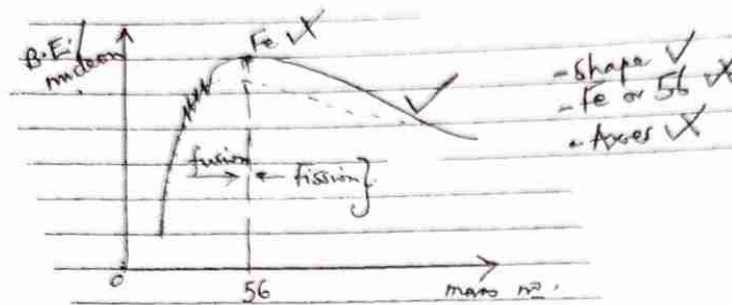 B.E/
nucleon
Fe
- Shape ✓
- Fe or 56
- Axes
fusion
fission
0
56
mass no.